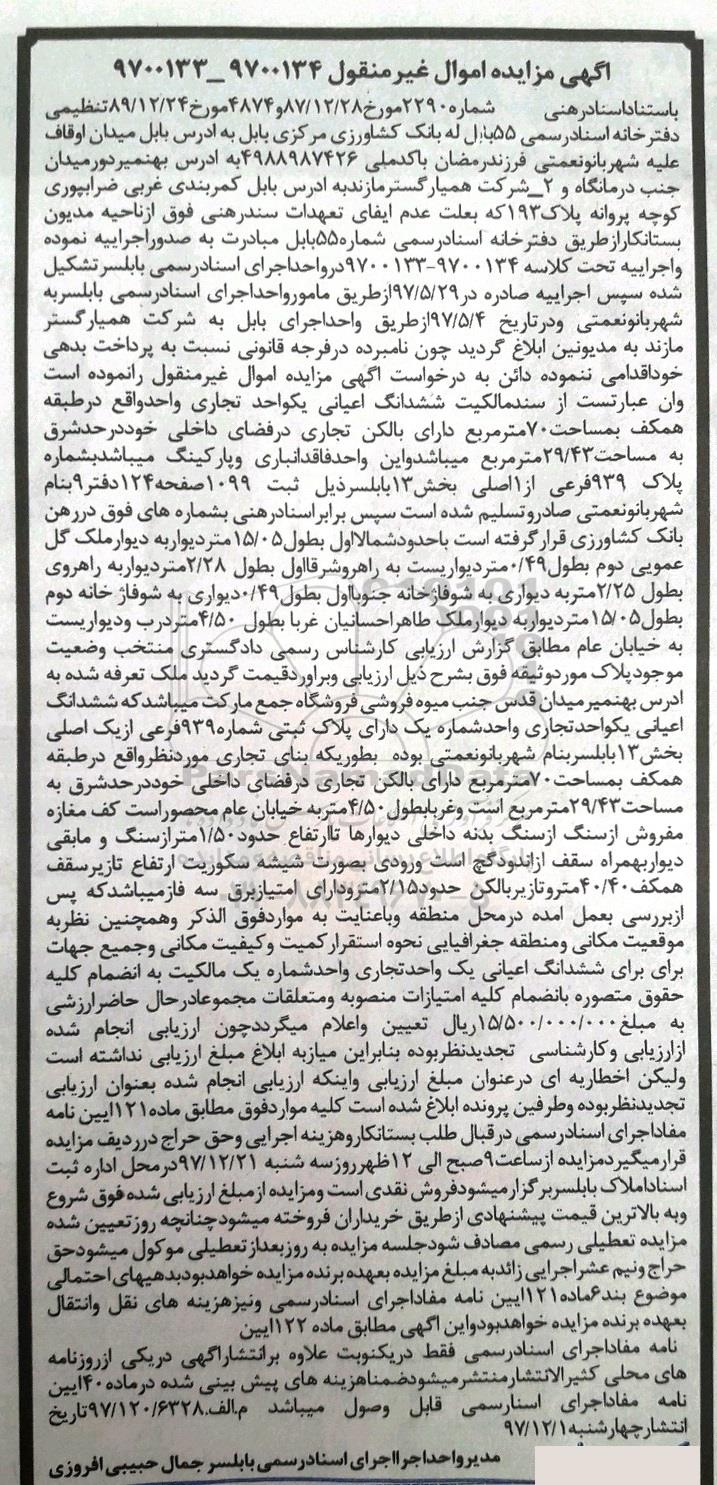 اگهی مزایده اموال غیرمنقول ۹۷۰۰۱۳۴ _۹۷۰۰۱۳۳
باستناداسنادرهنی شماره۲۲۹۰مورخ۸۷/۱۲/۲۸و۴۸۷۴مورخ۸۹/۱۲/۲۴تنظیمی
دفترخانه اسنادرسمی ۵۵بابل له بانک کشاورزی مرکزی بابل به ادرس بابل میدان اوقاف
علیه شهربانونعمتی فرزندرمضان باکدملی ۴۹۸۸۹۸۷۴۲۶به ادرس بهنمیردورمیدان
جنب درمانگاه و ۲_شرکت همیارگسترمازندبه ادرس بابل کمربندی غربی ضرابپوری
کوچه پروانه پلاک۱۹۳که بعلت عدم ایفای تعهدات سندرهنی فوق ازناحیه مدیون
بستانکارازطریق دفترخانه اسنادرسمی شماره۵۵بابل مبادرت به صدوراجراییه نموده
واجراییه تحت کلاسه ۹۷۰۰۱۳۴-۹۷۰۰۱۳۳درواحداجرای اسنادرسمی بابلسرتشکیل
شده سپس اجراییه صادره در۹۷/۵/۲۹ازطریق مامورواحداجرای اسنادرسمی بابلسربه
شهربانونعمتی ودرتاریخ ۹۷/۵/۴ازطریق واحداجرای بابل به شرکت همیارگستر
مازند به مدیونین ابلاغ گردید چون نامبرده درفرجه قانونی نسبت به پرداخت بدهی
خوداقدامی ننموده دائن به درخواست اگهی مزایده اموال غیرمنقول رانموده است
وان عبارتست از سندمالکیت ششدانگ اعیانی یکواحد تجاری واحدواقع درطبقه
همکف بمساحت۷۰مترمربع دارای بالکن تجاری درفضای داخلی خوددرحدشرق
به مساحت۲۹/۴۳مترمربع میباشدواین واحدفاقدانباری وپارکینگ میباشدبشماره
پلاک ۹۳۹فرعی از۱اصلی بخش۱۳بابلسرذیل ثبت ۱۰۹۹صفحه۱۲۴دفتر۹بنام
شهربانونعمتی صادروتسلیم شده است سپس برابراسنادرهنی بشماره های فوق دررهن
بانک کشاورزی قرارگرفته است باحدودشمالااول بطول۱۵/۰۵متردیواربه دیوارملک گل
عمویی دوم بطول۰/۴۹متردیواریست به راهروشرقااول بطول ۲/۲۸متردیواربه راهروی
بطول ۲/۲۵متربه دیواری به شوفاژخانه جنوبااول بطول۰/۴۹دیواری به شوفاژ خانه دوم
بطول۱۵/۰۵متردیواربه دیوارملک طاهراحسانیان غربا بطول ۴/۵۰متردرب ودیواریست
به خیابان عام مطابق گزارش ارزیابی کارشناس رسمی دادگستری منتخب وضعیت
موجودپلاک موردوثیقه فوق بشرح ذیل ارزیابی وبراوردقیمت گردید ملک تعرفه شده به
ادرس بهنمیرمیدان قدس جنب میوه فروشی فروشگاه جمع مارکت میباشدکه ششدانگ
اعیانی یکواحدتجاری واحدشماره یک دارای پلاک ثبتی شماره۹۳۹فرعی ازیک اصلی
بخش۱۳بابلسربنام شهربانونعمتی بوده بطوریکه بنای تجاری موردنظرواقع درطبقه
همکف بمساحت۷۰مترمربع دارای بالکن تجاری درفضای داخلی خوددرحدشرق به
مساحت۲۹/۴۳مترمربع است وغربابطول ۴/۵۰متربه خیابان عام محصوراست کف مغازه
مفروش ازسنگ ازسنگ بدنه داخلی دیوارها تاارتفاع حدود۱/۵۰مترازسنگ و مابقی
دیواربهمراه سقف ازاندودگچ است ورودی بصورت شیشه سکوریت ارتفاع تازیرسقف
همکف۴۰/۴۰متروتازیربالکن حدود۲/۱۵مترودارای امتیازبرق سه فازمیباشدکه پس
ازبررسی بعمل امده درمحل منطقه وباعنایت به مواردفوق الذکر وهمچنین نظربه
موقعیت مکانی ومنطقه جغرافیایی نحوه استقرارکمیت وکیفیت مکانی وجمیع جهات
برای برای ششدانگ اعیانی یک واحدتجاری واحدشماره یک مالکیت به انضمام کلیه
حقوق متصوره بانضمام کلیه امتیازات منصوبه ومتعلقات مجموعادرحال حاضرارزشی
به مبلغ۱۵/۵۰۰/۰۰۰/۰۰۰ریال تعیین واعلام میگرددچون ارزیابی انجام شده
ازارزیابی وکارشناسی تجدیدنظربوده بنابراین میازبه ابلاغ مبلغ ارزیابی نداشته است
ولیکن اخطاریه ای درعنوان مبلغ ارزیابی واینکه ارزیابی انجام شده بعنوان ارزیابی
تجدیدنظربوده وطرفین پرونده ابلاغ شده است کلیه مواردفوق مطابق ماده۱۲۱ایین نامه
مفاداجرای اسنادرسمی درقبال طلب بستانکاروهزینه اجرایی وحق حراج درردیف مزایده
قرارمیگیردمزایده ازساعت۹صبح الی ۱۲ظهرروزسه شنبه ۹۷/۱۲/۲۱درمحل اداره ثبت
اسناداملاک بابلسربرگزارمیشودفروش نقدی است ومزایده ازمبلغ ارزیابی شده فوق شروع
وبه بالاترین قیمت پیشنهادی ازطریق خریداران فروخته میشودچنانچه روزتعیین شده
مزایده تعطیلی رسمی مصادف شودجلسه مزایده به روزبعدازتعطیلی موکول میشودحق
حراج ونیم عشراجرایی زائدبه مبلغ مزایده بعهده برنده مزایده خواهدبودبدهیهای احتمالی
موضوع بند۶ماده۱۲۱ایین نامه مفاداجرای اسنادرسمی ونیزهزینه های نقل وانتقال
بعهده برنده مزایده خواهدبودواین اگهی مطابق ماده ۱۲۲ایین
نامه مفاداجرای اسنادرسمی فقط دریکنوبت علاوه برانتشاراگهی دریکی ازروزنامه
های محلی کثیرالانتشارمنتشرمیشودضمناهزینه های پیش بینی شده درماده۴۰ایین
نامه مفاداجرای اسنارسمی قابل وصول میباشد م.الف.۹۷/۱۲۰/۶۳۲۸تاریخ
انتشارچهارشنبه۹۷/۱۲/۱
مدیرواحداجرااجرای اسنادرسمی بابلسر جمال حبیبی افروزی